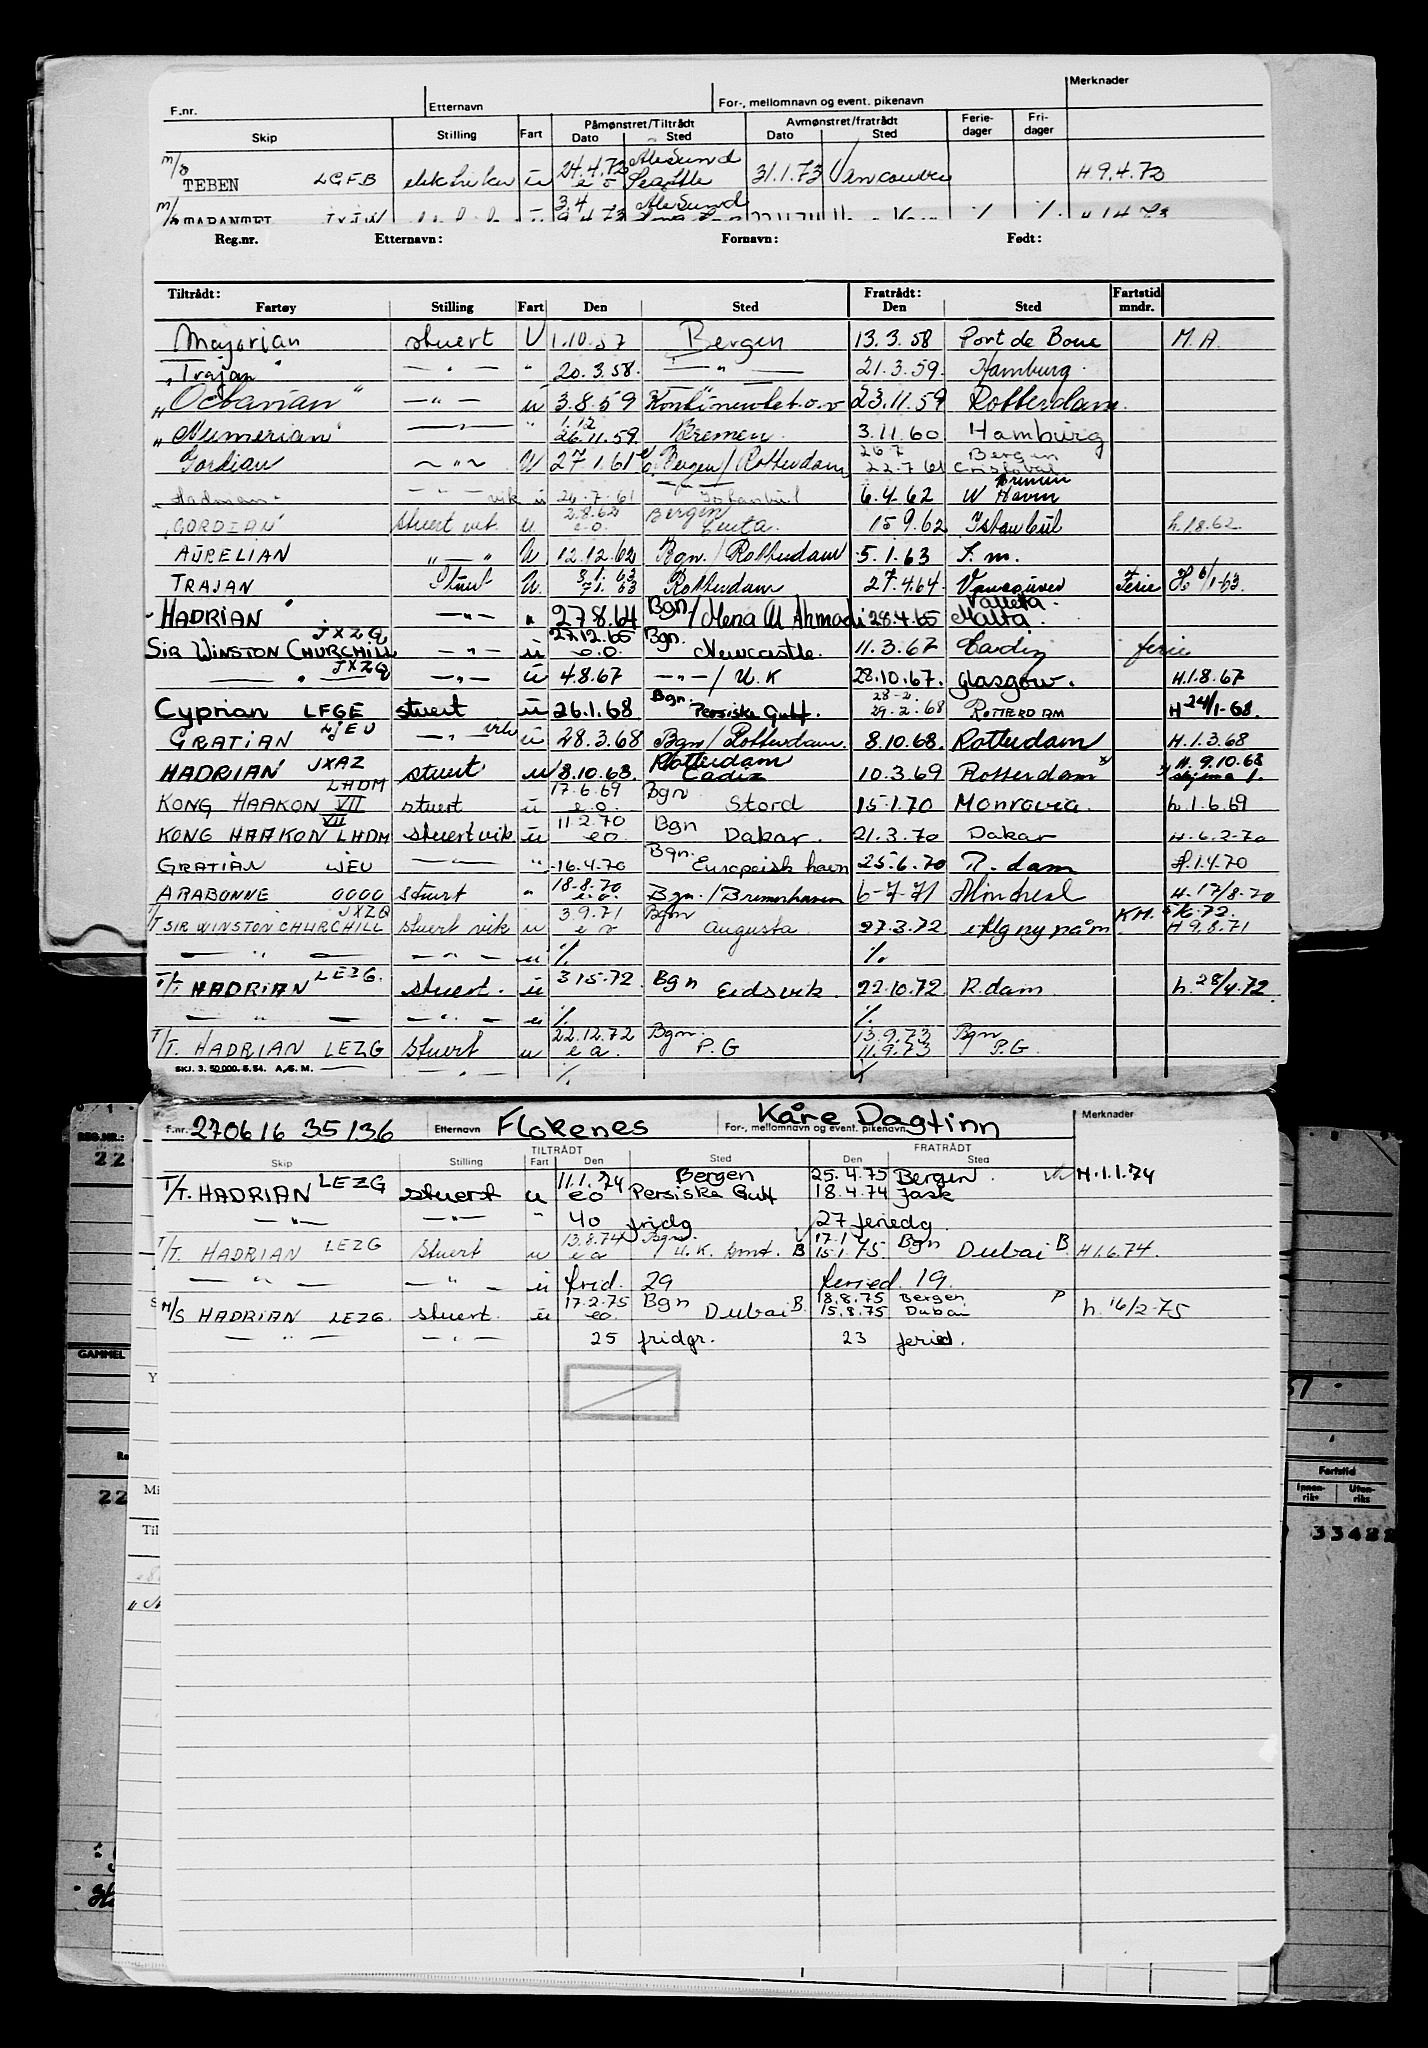 F.nr. Etternavn For-, mellomnavn og event. pikenavn Merknader
Skip Stilling Fart Påmønstret/Tiltrådt Dato Sted Avmønstret/fratrådt Dato Sted Ferie-dager Fri-dager
m/s TEBEN LGFB ü 24.4.72 Ålesund e o Seattle 31.1.73 Vancouver H 9.4.72
Reg.nr. Etternavn: Fornavn: Født:
Tiltrådt: Fratrådt: Fartstid
Fartøy Stilling Fart Den Sted Den Sted mndr.
Majorian stuert U 1.10.57 Bergen 13.3.58 Port de Bouc M.A.
"Trajan" — " — " 20.3.58. — " — 21.3.59. Hamburg.
"Octavian" — " — u 3.8.59 23.11.59 Rotterdam.
"Numerian" — " — " 1.12 26.11.59. Bremen. 3.11.60 Hamburg
Gordian — " — U 27.1.61 Bergen/Rotterdam 26.7 Bergen 22.7.61 Cristobal
— " — vik u 26.7.61 Istanbul 6.4.62 W Havn Bremen
"GORDIAN" stuert vik. u 2.8.62 e.o. Bergen Ceuta. 15.9.62 Istanbul h.1.8.62.
AURELIAN " — " U 12.12.62 Bgn./Rotterdam 5.1.63 F.m.
TRAJAN Stuert U. 7.1.63 Rotterdam 27.4.64 Vancouver Ferie H 6/1-63
"HADRIAN" — " — " 27.8.64 Bgn/Mena Al Ahmadi 28.4.65 Valleta Malta.
SIR WINSTON CHURCHILL JXZQ — " — ü 27.12.65 e.o. Bgn. Newcastle. 11.3.67 Cadiz ferie
— " — JXZQ — " — ü 4.8.67 — " — / U.K 28.10.67. Glasgow. H.1.8.67
Cyprian LFGE stuert ü 26.1.68 Bgn. Persiske Gulf. 28-2 29.2.68 ROTTERDAM H 24/1-68.
GRATIAN LJEU — " — vik ü 28.3.68 Bgn/Rotterdam. 8.10.68. Rotterdam H.1.3.68
HADRIAN JXAZ stuert u 8.10.68. Rotterdam Cadiz 10.3.69 Rotterdam x H.9.10.68 skjema f.
KONG HAAKON VII LHDM stuert ü 17.6.69 e.o. Bgn Stord 15.1.70 Monrovia. h.1.6.69
KONG HAAKON VII LHDM stuert vik. ü 11.2.70 eo. Bgn Dakar. 21.3.70 Dakar H.6.2-70
GRATIAN LJEU — " — " 16.4.70 Bgn. Europeisk havn 25.6.70 R.dam H.1.4.70
ARABONNE 0000 stuert " 18-8.70 e.o. Bgn./Bremerhaven 6-7-71 Montreal H.17/8-70
T/T SIR WINSTON CHURCHILL JXZQ stuert vik u 3.9.71 e o Bgn Augusta 27.3.72 KH. 5/6-72. H 9.8.71
— " — — " — u % %
T/T. HADRIAN LEZG. stuert. ü 3 15.72 Bgn Eidsvik. 22.10.72 R.dam h.28/4.72.
— " — — " — u % %
T/T. HADRIAN LEZG stuert u 22.12.72 e a. Bgn. P.G 13.9.73 Bgn 11.9.73 P.G.
SKJ. 3. 50 000. 5.54. A/S. M. — — " — % %
F.nr. 270616 35136 Etternavn Flokenes For-, mellomnavn og event. pikenavn Kåre Dagfinn Merknader
TILTRÅDT FRATRÅDT
Skip Stilling Fart Den Sted Den Sted
T/T. HADRIAN LEZG stuert u 11.1.74 Bergen eo Persiske Gulf 25.4.75 Bergen 18.4.74 Jask H.1.1.74
— " — — " — " 40 fridg 27 feriedg.
T/T. HADRIAN LEZG Stuert u 13.8.74 e a Bgn. / U.K. B 17.1 15.1.75 Bgn Dubai B. H 1.6.74.
— " — — " — u frid. 29 feried. 19.
M/S HADRIAN LEZG. stuert. ü 17.2.75 eo. Bgn Dubai B. 18.8.75 Bergen 15.8.75 Dubai P h. 16/2-75
— " — — " — 25 fridgr. 23 feried.
REG.NR.:
22
GAMMEL
22
Fartstid
Innen-riks Uten-riks
33422